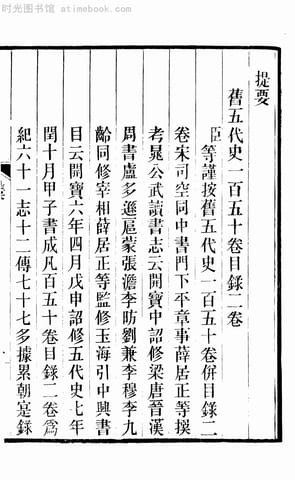 时光图书馆 - atimebook.com
提要
舊五代史一百五十卷目錄二卷
臣等謹按舊五代史一百五十卷併目錄二
卷宋司空同中書門下平章事薛居正等撰
考晁公武讀書志云開寶中詔修梁唐晉漢
周書盧多遜扈蒙張澹李昉劉兼李穆李九
齡同修宰相薛居正等監修玉海引中興書
目云開寶六年四月戊申詔修五代史七年
閏十月甲子書成凡百五十卷目錄二卷爲
紀六十一志十二傳七十七多據累朝寔錄